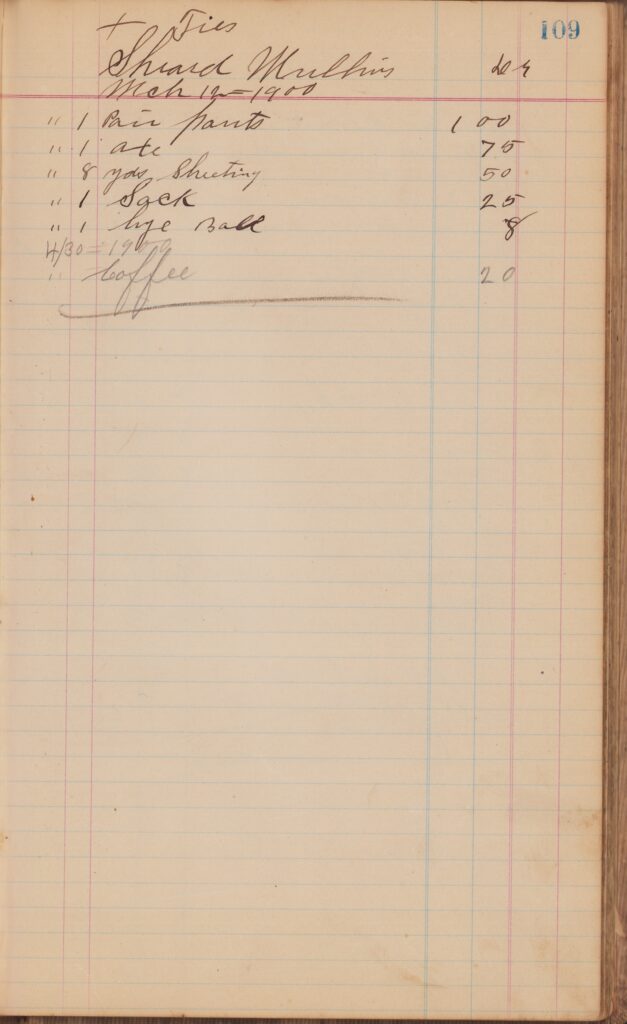 + Ties
109
Sheard Mullins Dr
Mch 12 = 1900
" 1 Pair pants 1 00
" 1 axe 75
" 8 yds Sheeting 50
" 1 Sack 25
" 1 lye Ball 8
4/30 = 1900
" Coffee 20